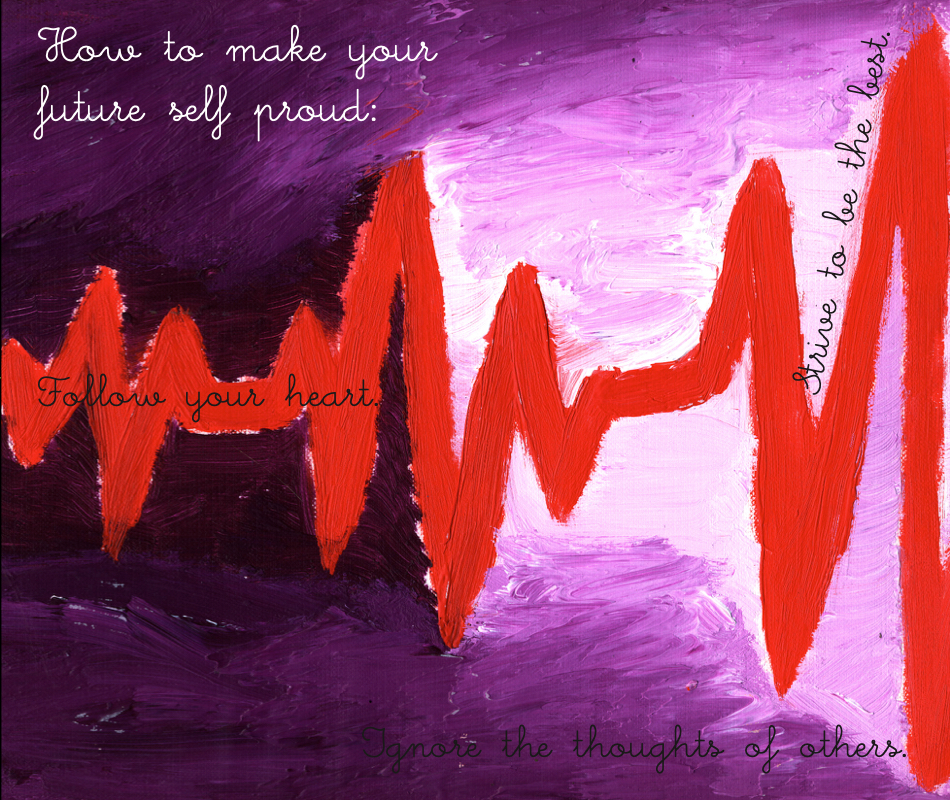 How to make your
future self proud:
Strive to be the best.
Follow your heart.
Ignore the thoughts of others.